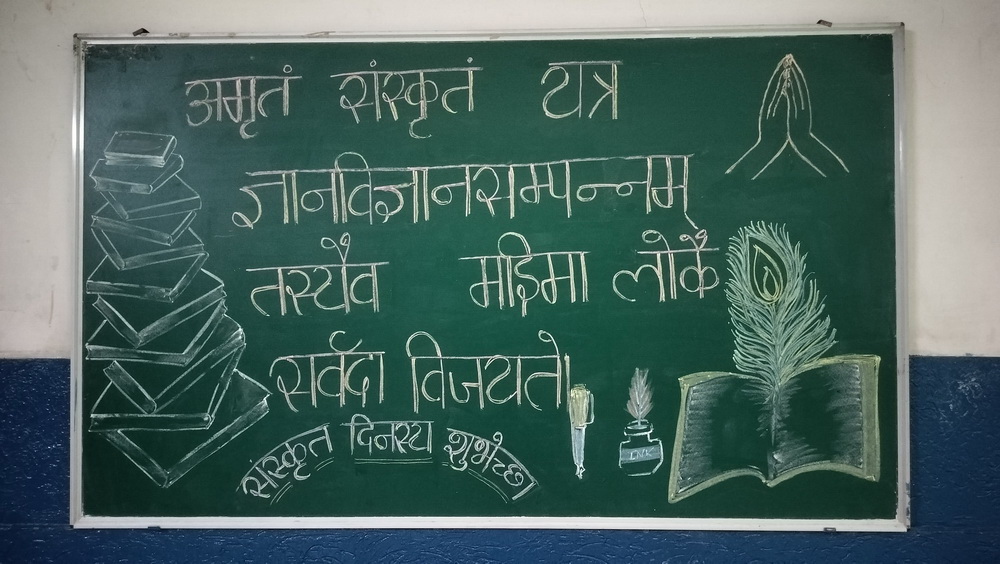 अमृतं संस्कृतं यत्र
ज्ञानविज्ञानसम्पन्नम्
तस्यैव महिमा लोके
सर्वदा विजयतो
संस्कृत दिनस्य शुभेच्छा
INK